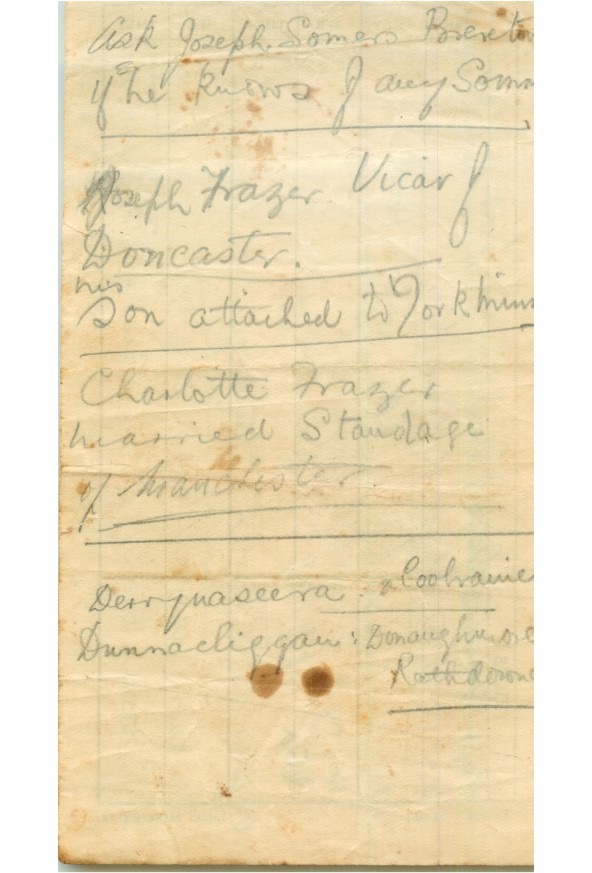 Ask Joseph Somers
if he knows of any Som
Joseph Frazer Vicar of
Doncaster.
his
Son attached to York
Charlotte Frazer
married Standage
of Manchester.
Derrynaseera : Coolraine
Dunnacliggan : Donaughmore
Rathdowne